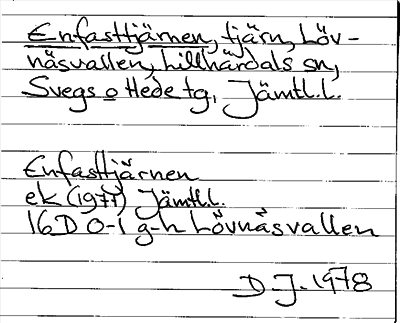 Enfasttjärnen, tjärn, Löv-
näsvallen, Lillhärdals sn,
Svegs o Hede tg, Jämtl.l.
Enfasttjärnen
ek (1977) Jämtl.l.
16D 0-1 g-h Lövnäsvallen
D J. 1978